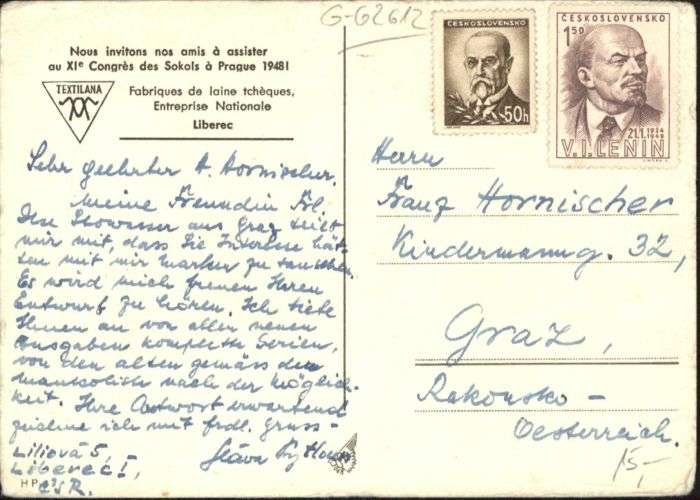 G-G2612
Nous invitons nos amis à assister
au XIe Congrès des Sokols à Prague 1948!
TEXTILANA
Fabriques de laine tchèques,
Entreprise Nationale
Liberec
ČESKOSLOVENSKO
50h
ČESKOSLOVENSKO
1.50
21.1.1924
1949
V.I.LENIN
Sehr geehrter H. Hornischer,
meine Freundin Frl.
Ilse Slowasser aus Graz teilt
mir mit, dass Sie Interesse hät-
ten mit mir Marken zu tauschen.
Es wird mich freuen Ihren
Entwurf zu hören. Ich biete
Ihnen an von allen neuen
Ausgaben komplette Serien,
von den alten gemäss der
Mankoliste nach der Möglich-
keit. Ihre Antwort erwartend
zeichne ich mit frdl. Gruss -
Sláva
Liliová 5,
Liberec I,
ČSR.
HP
Herrn
Franz Hornischer
Kindermanng. 32,
Graz,
Rakousko -
Oesterreich.
15,-